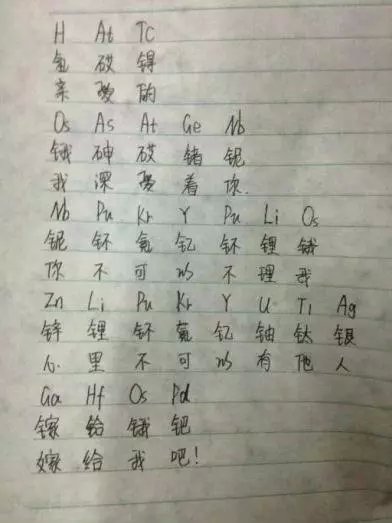 H At Tc
氢 砹 锝
亲 爱 的
Os As At Ge Nb
锇 砷 砹 锗 铌
我 深 爱 着 你.
Nb Pu Kr Y Pu Li Os
铌 钚 氪 钇 钚 锂 锇
你 不 可 以 不 理 我
Zn Li Pu Kr Y U Ti Ag
锌 锂 钚 氪 钇 铀 钛 银
心 里 不 可 以 有 他 人
Ga Hf Os Pd
镓 铪 锇 钯
嫁 给 我 吧!